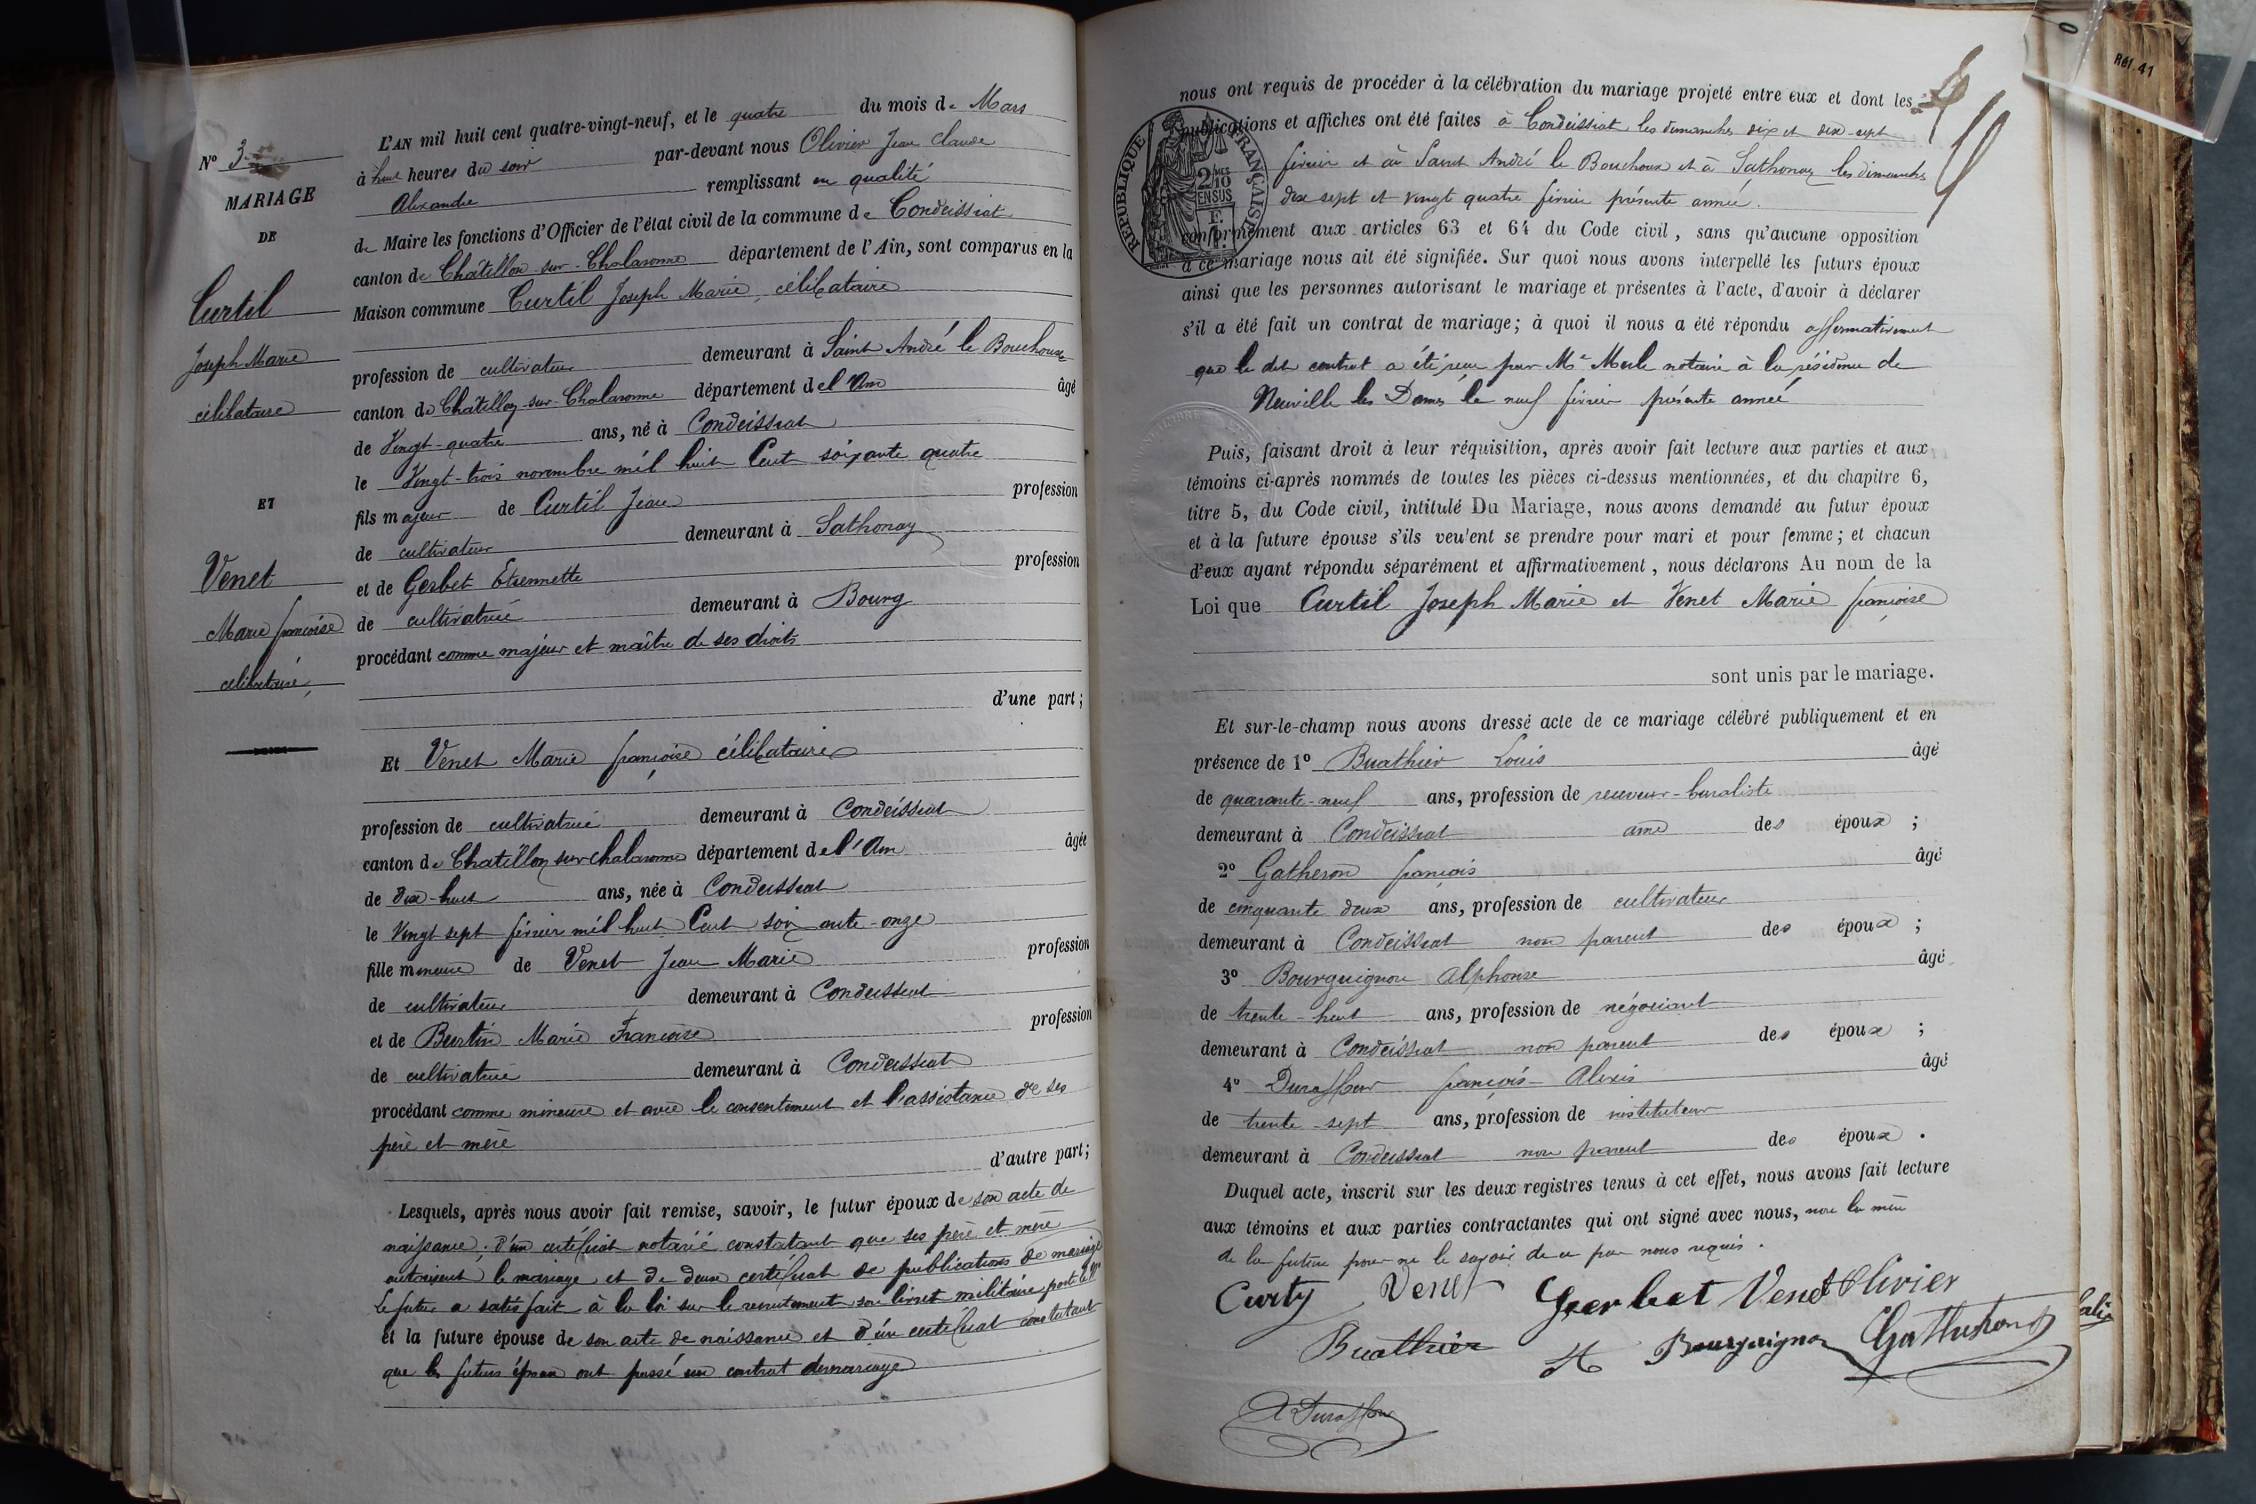 N° 3
MARIAGE
DE
Curtil
Joseph Marie
célibataire
ET
Venet
Marie françoise
célibataire,
L'AN mil huit cent quatre-vingt-neuf, et le quatre du mois de Mars
à huit heures du soir par-devant nous Olivier Jean Claude
Alexandre remplissant en qualité
de Maire les fonctions d'Officier de l'état civil de la commune de Condeissiat
canton de Châtillon-sur-Chalaronne département de l'Ain, sont comparus en la
Maison commune Curtil Joseph Marie, célibataire
profession de cultivateur demeurant à Saint André le Bouchoux
canton de Châtillon-sur-Chalaronne département de l'Ain âgé
de Vingt-quatre ans, né à Condeissiat
le Vingt-trois novembre mil huit Cent soixante quatre
fils majeur de Curtil Jean profession
de cultivateur demeurant à Sathonay
et de Gerbet Etiennette profession
de cultivatrice demeurant à Bourg
procédant comme majeur et maître de ses droits
d'une part ;
Et Venet Marie françoise célibataire
profession de cultivatrice demeurant à Condeissiat
canton de Chatillon sur chalaronne département de l'Ain âgée
de dix-huit ans, née à Condeissiat
le Vingt sept février mil huit Cent soixante-onze
fille mineure de Venet Jean Marie profession
de cultivateur demeurant à Condeissiat
et de Burtin Marie Françoise profession
de cultivatrice demeurant à Condeissiat
procédant comme mineure et avec le consentement et l'assistance de ses
père et mère
d'autre part ;
Lesquels, après nous avoir fait remise, savoir, le futur époux de son acte de
naissance ; d'un certificat notarié constatant que ses père et mère
autorisent le mariage et de deux certificat de publications de mariage
Le futur a satisfait à la loi sur le recrutement son livret militaire porte le N°
et la future épouse de son acte de naissance et d'un certificat constatant
que les futurs époux ont passé un contrat de mariage
Réf. 41
RÉPUBLIQUE FRANÇAISE
2/10 MES
EN SUS
nous ont requis de procéder à la célébration du mariage projeté entre eux et dont les
publications et affiches ont été faites à Condeissiat les dimanches dix et dix-sept
février et à Saint André le Bouchoux et à Sathonay les dimanches
dix sept et vingt quatre février présente année.
conformément aux articles 63 et 64 du Code civil, sans qu'aucune opposition
à ce mariage nous ait été signifiée. Sur quoi nous avons interpellé les futurs époux
ainsi que les personnes autorisant le mariage et présentes à l'acte, d'avoir à déclarer
s'il a été fait un contrat de mariage ; à quoi il nous a été répondu affirmativement
que le dit contrat a été reçu par Me Merle notaire à la résidence de
Neuville les Dames le neuf février présente année
Puis, faisant droit à leur réquisition, après avoir fait lecture aux parties et aux
témoins ci-après nommés de toutes les pièces ci-dessus mentionnées, et du chapitre 6,
titre 5, du Code civil, intitulé Du Mariage, nous avons demandé au futur époux
et à la future épouse s'ils veulent se prendre pour mari et pour femme ; et chacun
d'eux ayant répondu séparément et affirmativement, nous déclarons Au nom de la
Loi que Curtil Joseph Marie et Venet Marie françoise
sont unis par le mariage.
Et sur-le-champ nous avons dressé acte de ce mariage célébré publiquement et en
présence de 1° Buathier Louis âgé
de quarante-neuf ans, profession de receveur-buraliste
demeurant à Condeissiat ami des époux ;
2° Gatheron françois âgé
de cinquante deux ans, profession de cultivateur
demeurant à Condeissiat non parent des époux ;
3° Bourguignon Alphonse âgé
de trente-huit ans, profession de négociant
demeurant à Condeissiat non parent des époux ;
4° Duraffour françois-Alexis âgé
de trente-sept ans, profession de instituteur
demeurant à Condeissiat non parent des époux .
Duquel acte, inscrit sur les deux registres tenus à cet effet, nous avons fait lecture
aux témoins et aux parties contractantes qui ont signé avec nous, non la mère
de la future pour ne le savoir de ce par nous requis.
Curty Venet Gerbet Venet Olivier
Buathier A Bourguignon Gatheron
A Duraffour